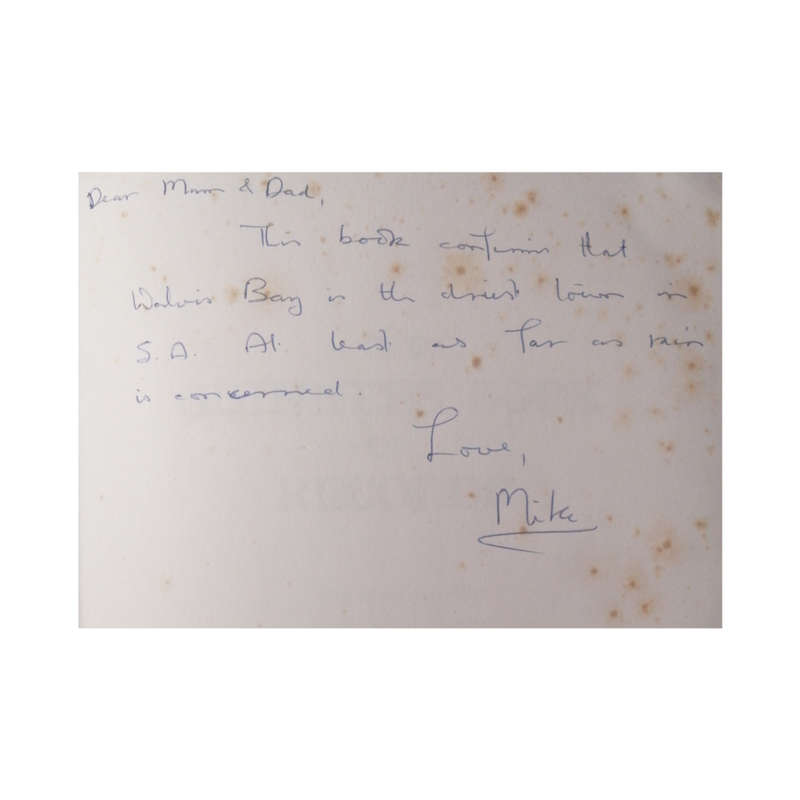 Dear Mum & Dad,
This book confirms that
Walvis Bay is the driest town in
S.A. At least as far as rain
is concerned.
Love,
Mike